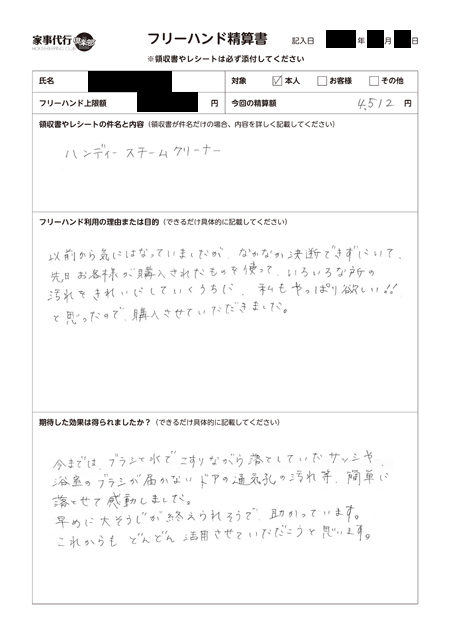 家事代行 倶楽部
フリーハンド精算書
記入日 年 月 日
※領収書やレシートは必ず添付してください
氏名 対象 ☑本人 □お客様 □その他
フリーハンド上限額 円 今回の精算額 4,512 円
領収書やレシートの件名と内容（領収書が件名だけの場合、内容を詳しく記載してください）
ハンディー スチームクリーナー
フリーハンド利用の理由または目的（できるだけ具体的に記載してください）
以前から気にはなっていましたが、なかなか決断できずにいて、
先日お客様が購入されたものを使って、いろいろな所の
汚れをきれいにしていくうちに、私もやっぱり欲しい!!
と思ったので、購入させていただきました。
期待した効果は得られましたか？（できるだけ具体的に記載してください）
今までは、ブラシと水でこすりながら落としていたサッシや、
浴室のブラシが届かないドアの通気孔の汚れ等、簡単に
落とせて感動しました。
早めに大そうじが終えられそうで、助かっています。
これからも どんどん 活用させていただこうと思います。